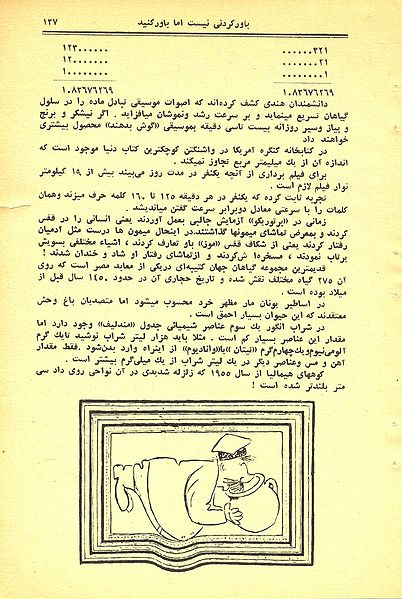 باورکردنی نیست اما باورکنید ۱۳۷
۱۲۳۰۰۰۰۰۰ ۰۰۰۰۰۰۳۲۱
۱۲۰۰۰۰۰۰ ۰۰۰۰۰۰۲۱
۱۰۰۰۰۰۰۰ ۰۰۰۰۰۰۰۱
۱۰۸۳۶۷۶۲۶۹ ۱۰۸۳۶۷۶۲۶۹
دانشمندان هندی کشف کرده‌اند که اصوات موسیقی تبادل ماده را در سلول
گیاهان تسریع مینماید و بر سرعت رشد ونموشان میافزاید . اگر نیشکر و برنج
و پیاز وسیر روزانه بیست تاسی دقیقه بموسیقی «گوش بدهند» محصول بیشتری
خواهند داد
در کتابخانه کنگره آمریکا در واشنگتن کوچکترین کتاب دنیا موجود است که
اندازه آن از یك میلیمتر مربع تجاوز نمیکند .
برای فیلم برداری از آنچه یکنفر در مدت روز می‌بیند بیش از ۱۹ کیلومتر
نوار فیلم لازم است .
تجربه ثابت کرده که یکنفر در هر دقیقه ۱۲۵ تا ۱۶۰ کلمه حرف میزند وهمان
کلمات را با سرعتی معادل دوبرابر سرعت گفتن میاندیشد .
زمانی در «پرتوریکو» آزمایش جالبی بعمل آوردند یعنی انسانی را در قفس
کردند و بمعرض تماشای میمونها گذاشتند.در اینحال میمون ها درست مثل آدمیان
رفتار کردند یعنی از شکاف قفس «موز» باو تعارف کردند ، اشیاء مختلفی بسویش
پرتاب نمودند ، مسخره‌اش کردند و ازتماشای رفتار او شاد و خندان شدند !
قدیمترین مجموعه گیاهان جهان کتیبه‌ای دریکی از معابد مصر است که روی
آن ۲۷۵ گیاه مختلف نقش شده و تاریخ حجاری آن در حدود ۱۴۵۰ سال قبل از
میلاد بوده است .
در اساطیر یونان مار مظهر خرد محسوب میشود اما متصدیان باغ وحش
معتقدند که این حیوان بسیار احمق است .
در شراب انگور یك سوم عناصر شیمیائی جدول «مندلیف» وجود دارد اما
مقدار این عناصر بسیار کم است . مثلا باید هزار لیتر شراب نوشید تایك گرم
آلومی‌نیوم‌ویك‌چهارم‌گرم «تیتان »یا«وانادیوم» از اینراه وارد بدن‌شود .فقط مقدار
آهن و مس وعناصر دیگر در یك لیتر شراب از یك میلی‌گرم بیشتر است .
کوههای هیمالیا از سال ۱۹۵۵ که زلزله شدیدی در آن نواحی روی داد سی
متر بلندتر شده است !